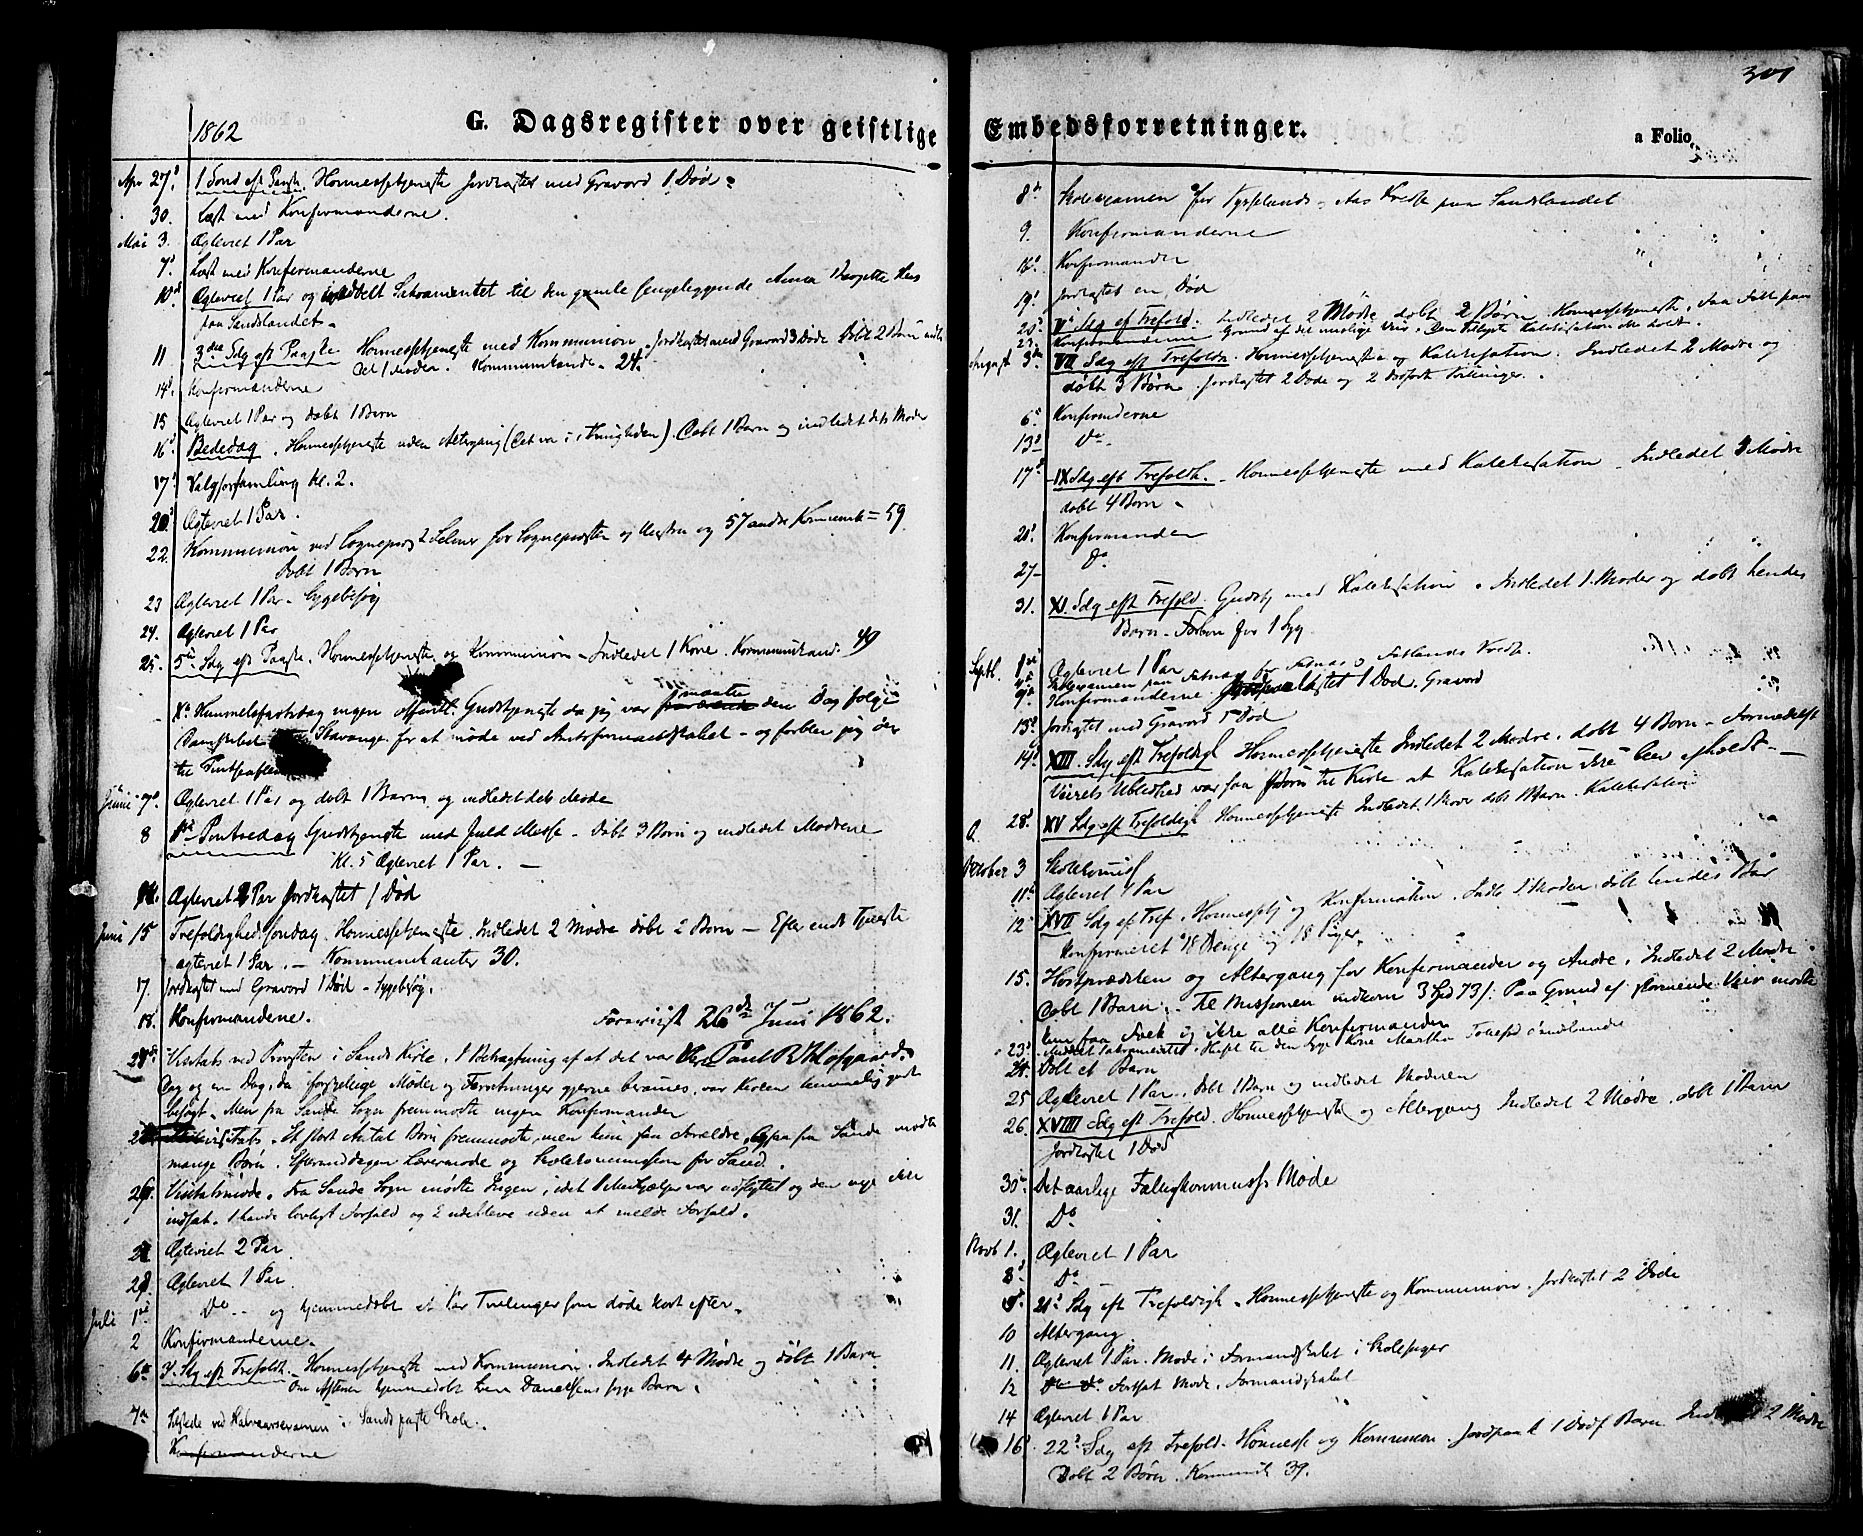 301
1862
G. Dagsregister over geistlige Embedsforretninger.
a Folio
Apr 27. 1 Sønd eft Paaske. Høimessetjeneste Jordkastet med Gravord 1 Død.
30. Læst med Konfirmanderne.
Mai 3. Ægteviet 1 Par
7. Læst med Konfirmanderne
10. Ægteviet 1 Par og meddelt Sakramentet til den gamle sengeliggende Anna
paa Sandslandet.
11 3die Sdg eft Paaske Høimessetjeneste med Kommunion. Jordkastet med Gravord 3 Døde Døbt 2 Børn
1 Moder. Kommunikande. 24.
14. Konfirmanderne
15 Ægteviet 1 Par og døbt 1 Barn
16. Bededag. Høimessetjeneste uden Altergang (Det var i Thingtiden). Døbt 1 Barn og indledet dets Moder
17. Valgforsamling Kl. 2.
20. Ægteviet 1 Par.
22. Kommunion ved Sogneprest Selmer for Sognepresten og Hustru og 57 andre Kommunik = 59
Døbt 1 Barn
23 Ægteviet 1 Par. Sygebesøg
24. Ægteviet 1 Par
25. 5te Sdg eft Paaske. Høimessetjeneste og Kommunion. Indledet 1 Kone. Kommunikand. 49
Kr. Himmelfartsdag ingen offentl. Gudstjeneste da jeg var maatte den Dag følge
Dampskibet Stavanger for at møde ved Amtsformandskabet og forblev jeg der
til Pintseaften
Juni 7. Ægteviet 1 Par og døbt 1 Barn og indledet dets Moder
8 1ste Pintsedag Gudstjeneste med fuld Messe. Døbt 3 Børn og indledet Mødrene
Kl. 5 Ægteviet 1 Par.
14. Ægteviet 2 Par Jordkastet 1 Død
Juni 15 Trefoldighedssøndag. Høimessetjeneste. Indledet 2 Mødre døbt 2 Børn. Efter endt Tjeneste
ægteviet 1 Par. Kommunikanter 30.
17. Jordkastet med Gravord 1 Død. Sygebesøg.
18. Konfirmanderne. Foreviist 26de Juni 1862.
Visitats ved Provsten i Sands Kirke. I Betragtning af at det var
Dag og en Dag, da forskjellige Møder og Forretninger gjerne berammes, var Kirken temmelig godt
besøgt. Men fra Sande Sogn fremmødte ingen Konfirmander
Et stort Antal Børn fremmødte, men kun faa Forældre. Ogsaa fra Sande mødte
mange Børn. Eftermiddagen Lærermøde og Skolekommission for Sand.
26. Visitatsmøde. Fra Sande Sogn mødte Ingen, idet 1 Medhjælper var udflyttet og den nye ikke
indsat. 1 havde lovligt Forfald og 2 udebleve uden at melde Forfald.
Ægteviet 2 Par
28. Ægteviet 1 Par.
Juli 1. Do. og hjemmedøbt et Par Tvillinger som døde kort efter.
2 Konfirmanderne.
6te 3. Sdg eft Trefoldh. Høimessetjeneste med Kommunion. Indledet 4 Mødre og døbt 1 Barn
Om Aftenen hjemmedøbt Danielsens syge Barn.
7de Tilstede ved Halvaarsexamen i Sands faste Skole.
Konfirmanderne
8de Skoleexamen for Kredse paa Sandslandet
9. Konfirmanderne
16. Konfirmander
19. Jordkastet en Død
20. V Sdg ef Trefold. Indledet 2 Mødre døbt 2 Børn. Høimessetjeneste. Faa Folk paa
Grund af det urolige Veir. Den tillyste Katekisation ikke holdt.
23. Konfirmanderne
August 3die VII Sdg eft Trefoldh. Høimessetjeneste og Katekisation. Indledet 2 Mødre og
døbt 3 Børn. Jordkastet 2 Døde og 2 dødfødte Tvillinger.
6. Konfirmanderne
13. Do.
17. IX Sdg eft Trefoldh. Høimessetjeneste med Katekisation. Indledet Mødre
døbt 4 Børn.
20. Konfirmanden
27. Do.
31. XI. Sdg eft Trefold. Gudstj med Katekisation. Indledet 1 Moder og døbt hendes
Barn. Forbøn for 1 Syg
Septb. 1ste Ægteviet 1 Par
4de Skoleexamen paa
9de Konfirmanderne. Jordkastet 1 Død. Gravord
13. Jordkastet med Gravord 5 Død
14. XIII. Sdg eft Trefoldigh. Høimessetjeneste Indledet 2 Mødre, døbt 4 Børn. Formedelst
Veirets Ublidhed var faa til Kirke at Katekisation ikke blev afholdt.
28. XV Sdg eft Trefoldigh Høimessetjeneste Indledet 1 Kone døbt 1 Barn. Katekisation
Oktober 3 Skolekomiss
11te Ægteviet 1 Par
12 XVII Sdg ef Tref. Høimessetj og Konfirmation. Indle 1 Moder, døbt hendes Bar
Konfirmeret 18 Drenge og 18 Piger.
15. Høstprædiken og Altergang for Konfirmander og Andre. Indledet 2 Mødre
Døbt 1 Barn. Til Missionen indkom 3 Spd 73 ß. Paa Grund af stormende Veir mødte
kun faa Folk og ikke alle Konfirmander
23. Meddelt Sakramentet til den syge Kone Martha
24. Døbt et Barn
25 Ægteviet 1 Par. Døbt 1 Barn og indledet Moderen
26. XVIII Sdg eft Trefold. Høimessetjeneste og Altergang Indledet 2 Mødre, døbt 1 Barn
Jordkastet 1 Død
30. Det aarlige Fattigkommiss Møde
31. Do
Novb 1. Ægteviet 1 Par
8. Do
9. 21. Sdg eft Trefoldigh. Høimessetjeneste og Kommunion. Jordkastet 2 Døde
10 Altergang
11. Ægteviet 1 Par. Møde i Formandskabet i Skolesager
12 Do Do. Fortsat Møde. Formandskabet
14 Ægteviet 6 Par
16. 22. Sdg eft Trefold. Høimesse og Kommunion. Jordpaak 1 Dødf Barn 2 Mødre
Døbt 2 Børn. Kommunik 39.